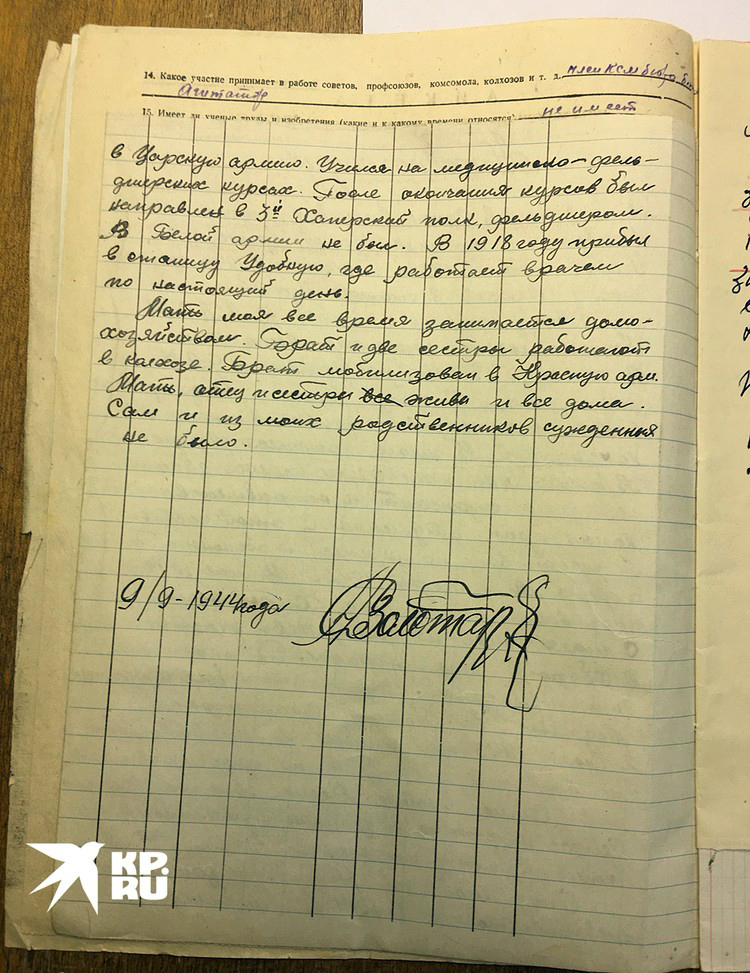 14. Какое участие принимает в работе советов, профсоюзов, комсомола, колхозов и т. д. член КСМ бюро
Агитатор
15. Имеет ли ученые труды и изобретения (какие и к какому времени относятся) не имеет
в Царскую армию. Учился на медицинско-фель-
дшерских курсах. После окончания курсов был
направлен в 3й Хоперский полк, фельдшером.
В Белой армии не был. В 1918 году прибыл
в станицу Удобную, где работает врачем
по настоящий день.
Мать моя все время занимается домо-
хозяйством. Брат и две сестры работают
в колхозе. Брат мобилизован в Красную арм.
Мать, отец и сестры все живы и все дома.
Сам и из моих родственников сужденных
не было.
9/9-1944 года
KP.
RU